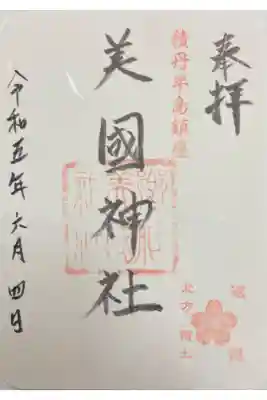 奉拝
積丹半島鎮座
美國神社
令和五年六月四日
北方領土